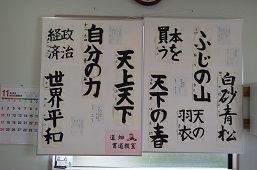 白砂青松
ふじの山
天の
羽衣
本を
買う
天下の春
天上天下
自分の力
政治
経済
世界平和
書道教室
11